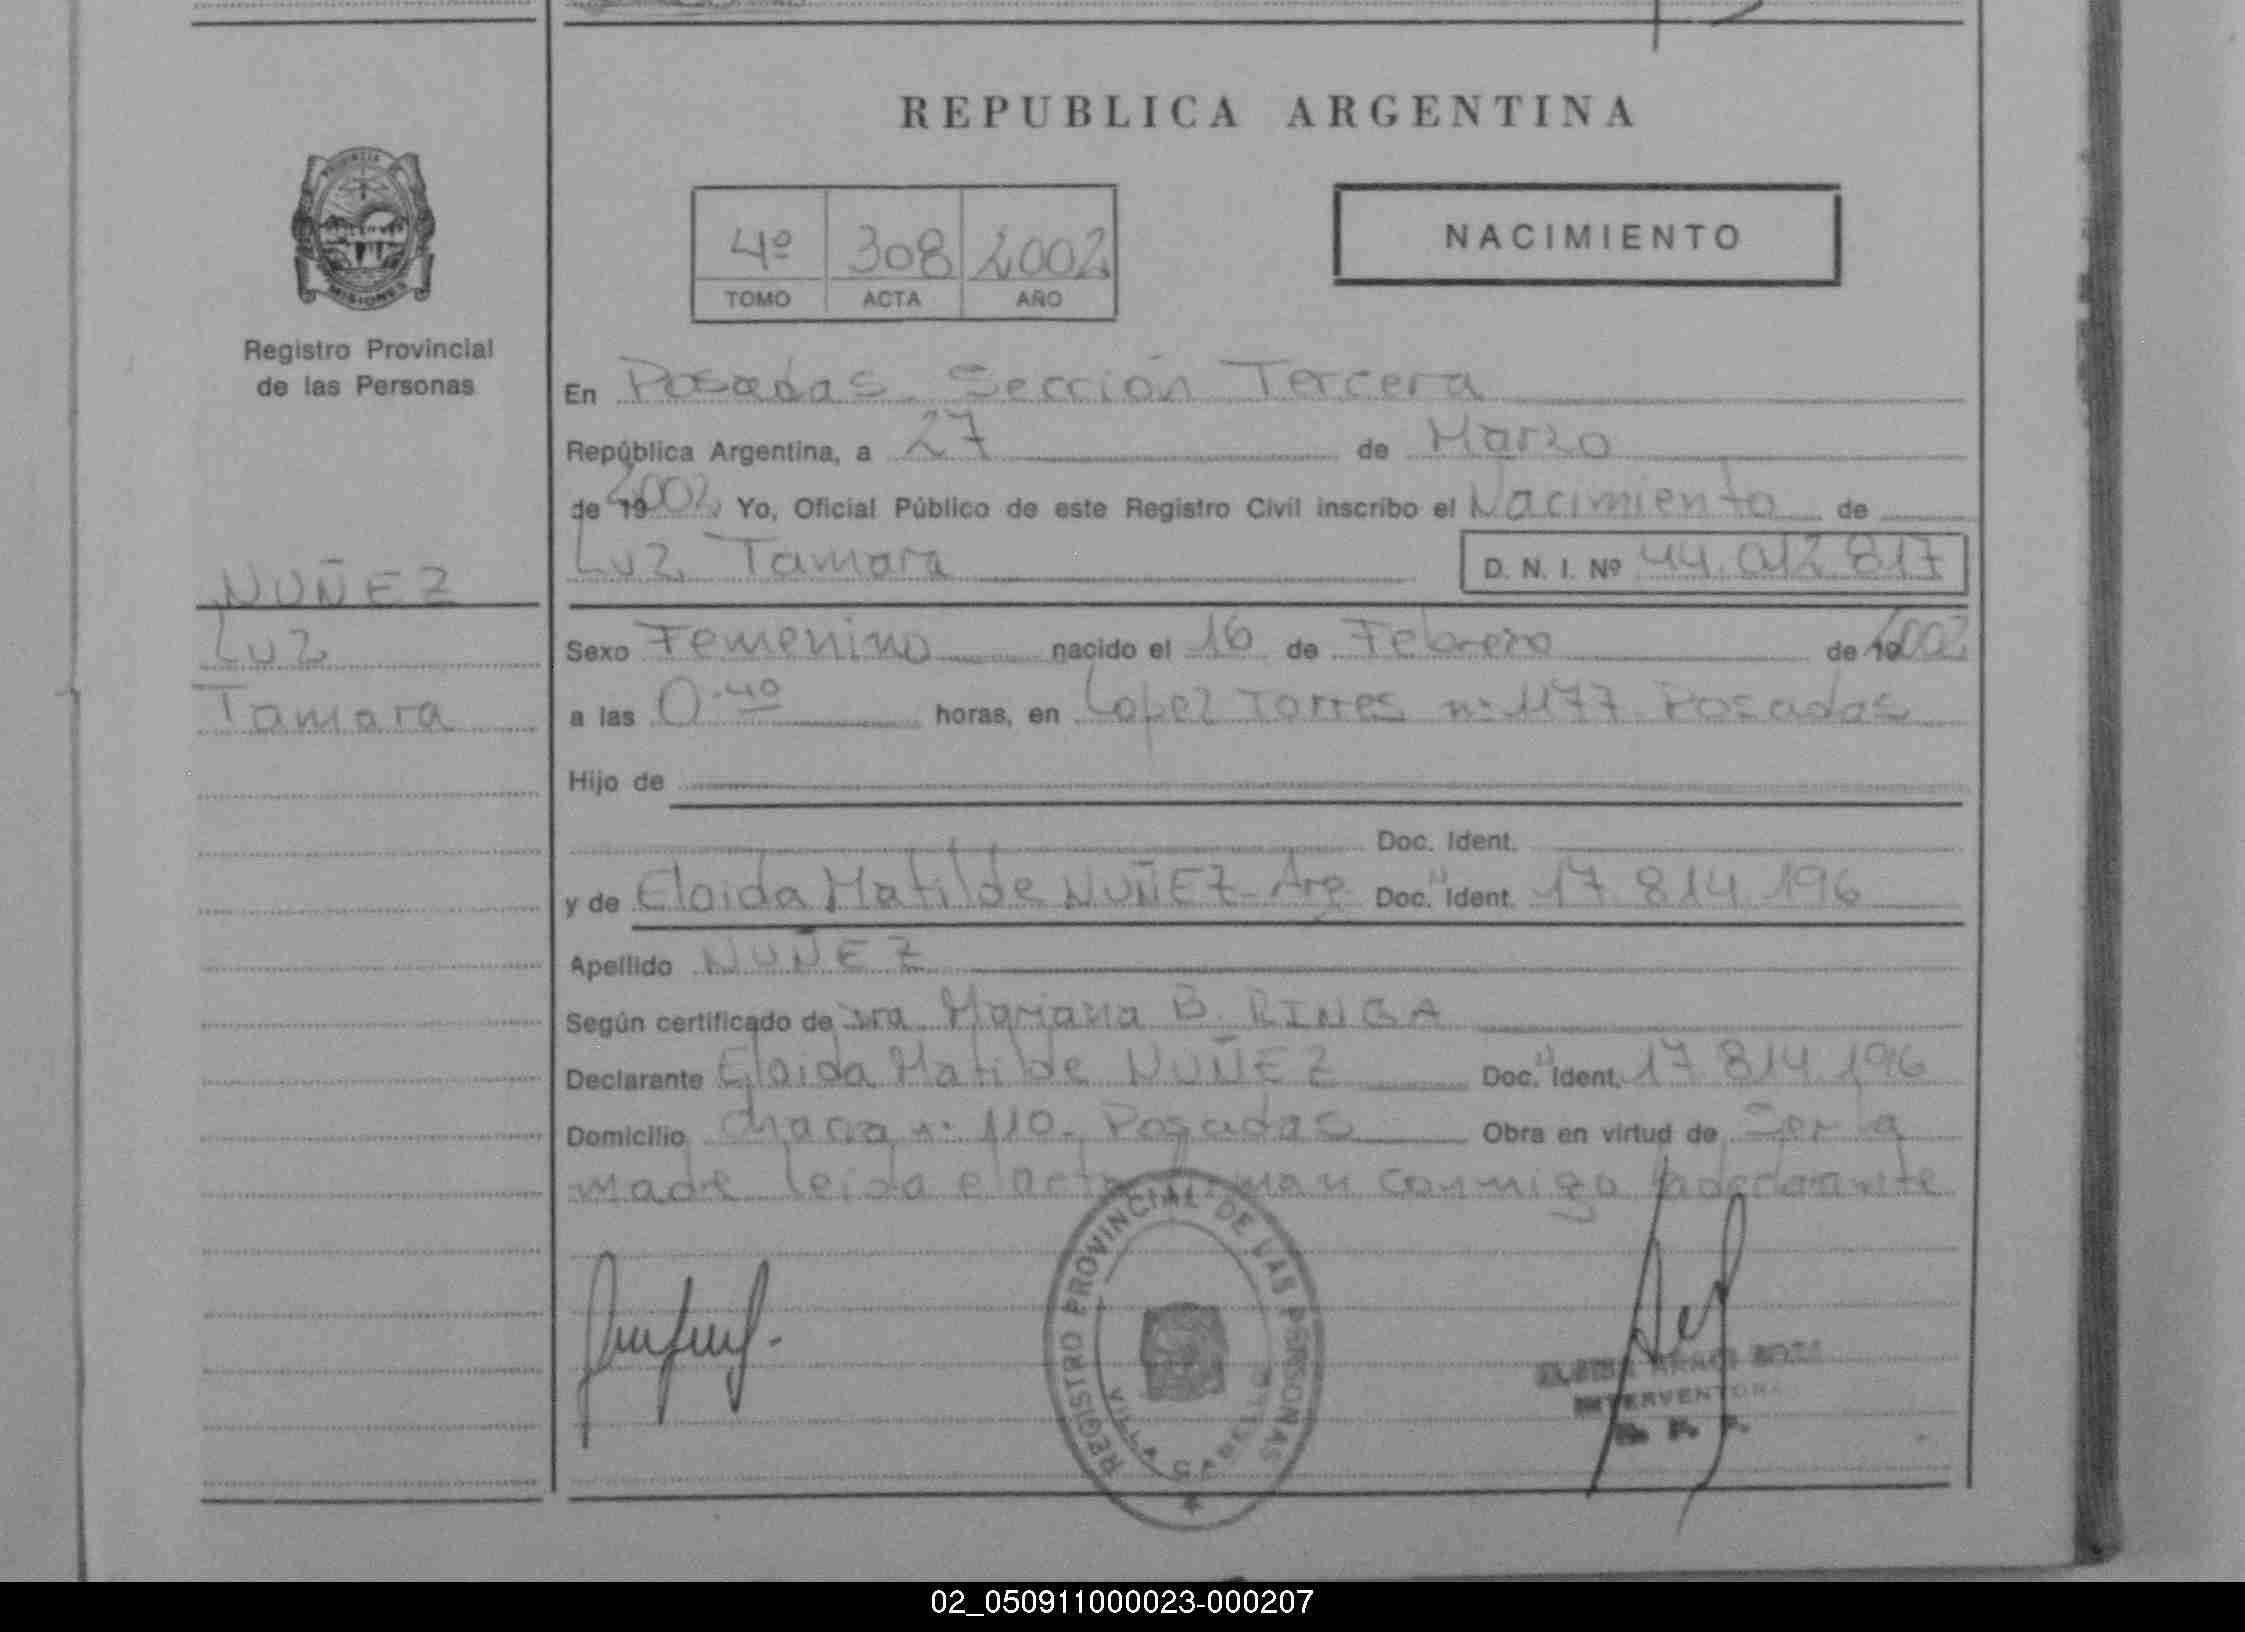 REPUBLICA ARGENTINA
PROVINCIA
MISIONES
Registro Provincial
de las Personas
4º 308 2002
TOMO ACTA AÑO
NACIMIENTO
En Posadas. Sección Tercera
República Argentina, a 27 de Marzo
de 19 2002 Yo, Oficial Público de este Registro Civil inscribo el Nacimiento de
Luz Tamara D. N. I. Nº 44.012.817
NUÑEZ
Luz
Tamara
Sexo Femenino nacido el 16 de Febrero de 19 2002
a las 0.40 horas, en Lopez Torres nº 1177 Posadas
Hijo de
Doc. Ident.
y de Eloida Matilde NUÑEZ - Arg Doc. Ident. 17.814.196
Apellido NUÑEZ
Según certificado de Dra Mariana B.
Declarante Eloida Matilde NUÑEZ Doc. Ident. 17.814.196
Domicilio chacra nº 110 - Posadas Obra en virtud de Ser la
madre leida el acta firman conmigo la declarante
REGISTRO PROVINCIAL DE LAS PERSONAS
VILLA
INTERVENTORA
02_050911000023-000207